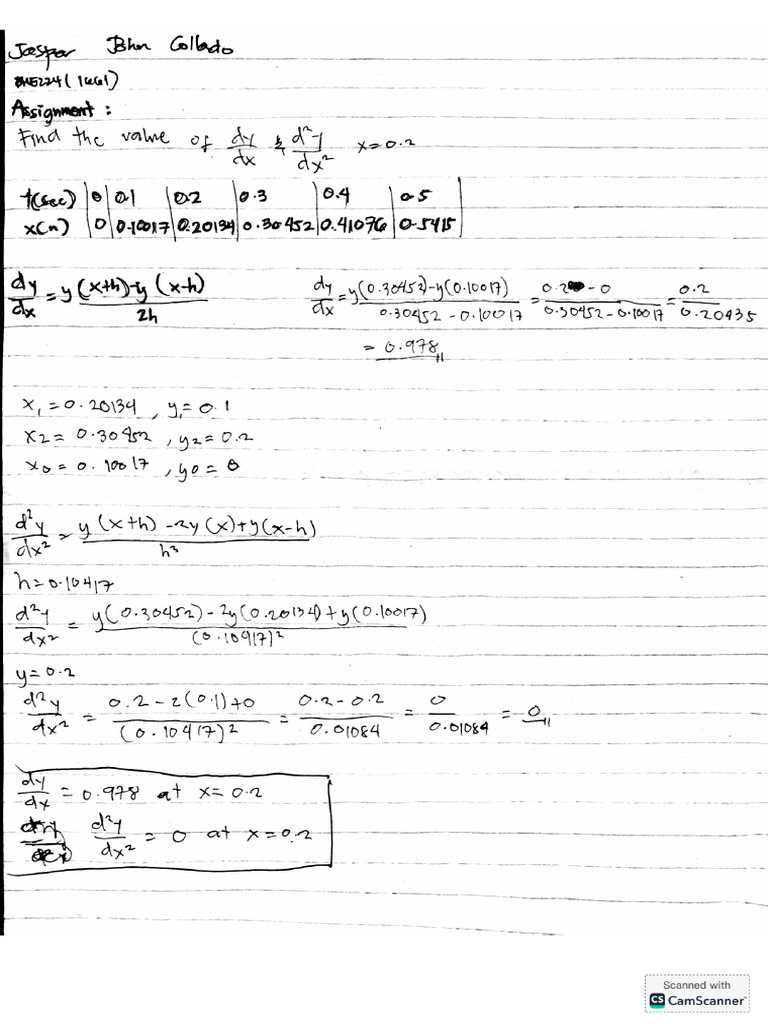 Jaespar Jhon Collado
(1661)
Assignment :
Find the value of dy/dx & d²y/dx² x=0.2
t(sec) | 0 | 0.1 | 0.2 | 0.3 | 0.4 | 0.5
x(m) | 0 | 0.10017 | 0.20134 | 0.30452 | 0.41076 | 0.5415
dy/dx = y(x+h)-y(x-h) / 2h
dy/dx = y(0.30452)-y(0.10017) / 0.30452-0.10017 = 0.2-0 / 0.30452-0.10017 = 0.2 / 0.20435
= 0.978
x₁ = 0.20134, y₁ = 0.1
x2 = 0.30452, y2 = 0.2
x0 = 0.10017, y0 = 0
d²y/dx² = y(x+h) -2y(x)+y(x-h) / h²
h=0.10417
d²y/dx² = y(0.30452)-2y(0.20134)+y(0.10017) / (0.10417)²
y=0.2
d²y/dx² = 0.2-2(0.1)+0 / (0.10417)² = 0.2-0.2 / 0.01084 = 0 / 0.01084 = 0
dy/dx = 0.978 at x=0.2
d²y/dx² = 0 at x=0.2
Scanned with
CS CamScanner